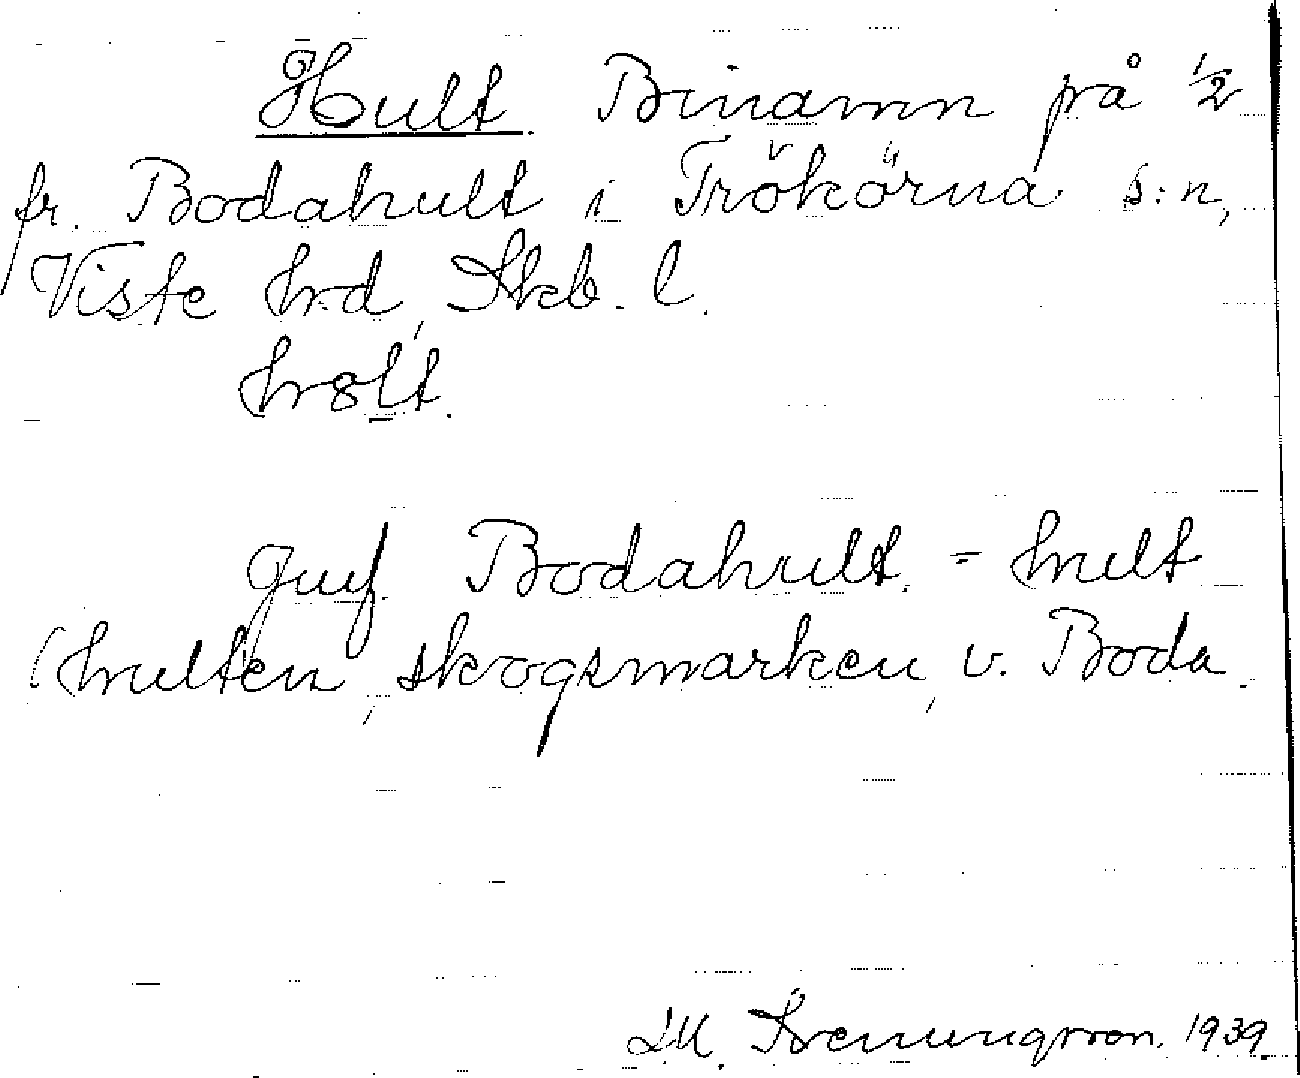 Hult. Binamn på 1/2
fr. Bodahult i Trökörna s:n,
Viste hrd, Skb. l.
hult.
Jmf. Bodahult. - hult
(hulten, skogsmarken, v. Boda.
M. Svenungsson. 1939.